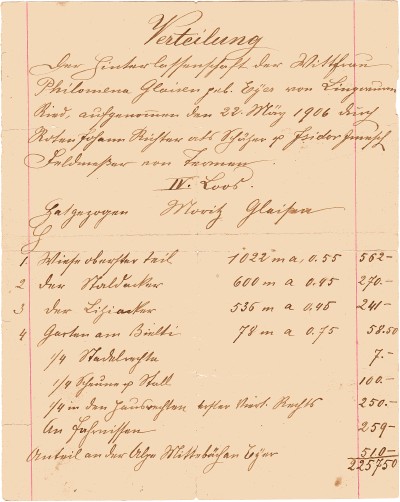 Verteilung
Der Hinterlassenschaft der Wittfrau
Philomena Gleisen geb. Eyer von
Ried, aufgenommen den 22. März 1906 durch
Johann Richter als Schäzer u Isidor
Feldmeßer von Termen.
IV. Loos.
Hat gezogen Moritz Gleisen
1 Wiese oberster Teil 1022 m a 0.55 562.-
2 der Staldacker 600 m a 0.45 270.-
3 der Liziacker 536 m a 0.45 241.-
4 Garten am Bielti 78 m a 0.75 58.50
1/4 Stadelrechte 7.-
1/4 Scheune u Stall 100.-
1/4 in den Hausrechten erster Viert. Rechts 250.-
An Fahrnissen 259.-
Anteil an der Alpe Mittebächen Eyer 510.-
2257.50